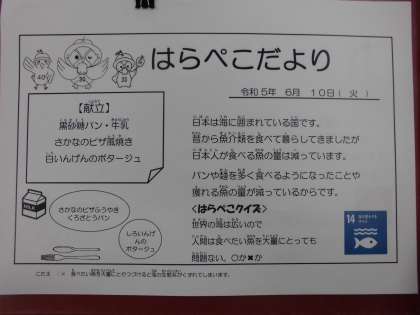 はらぺこだより
令和5年 6月 10日( 火 )
【献立】
黒砂糖パン・牛乳
さかなのピザ風焼き
白いんげんのポタージュ
日本は海に囲まれている国です。
昔から魚介類を食べて暮らしてきましたが
日本人が食べる魚の量は減っています。
パンや麺を多く食べるようになったことや
獲れる魚の量が減っているからです。
<はらぺこクイズ>
世界の海は広いので
人間は食べたい魚を大量にとっても
問題ない。○か✖か
さかなのピザふうやき
くろざとうパン
しろいんげ
んの
ポタージュ
MILK
14
こたえ :× 食べたい魚を大量にとりつづけると海の生態系がくずれてしまいます。